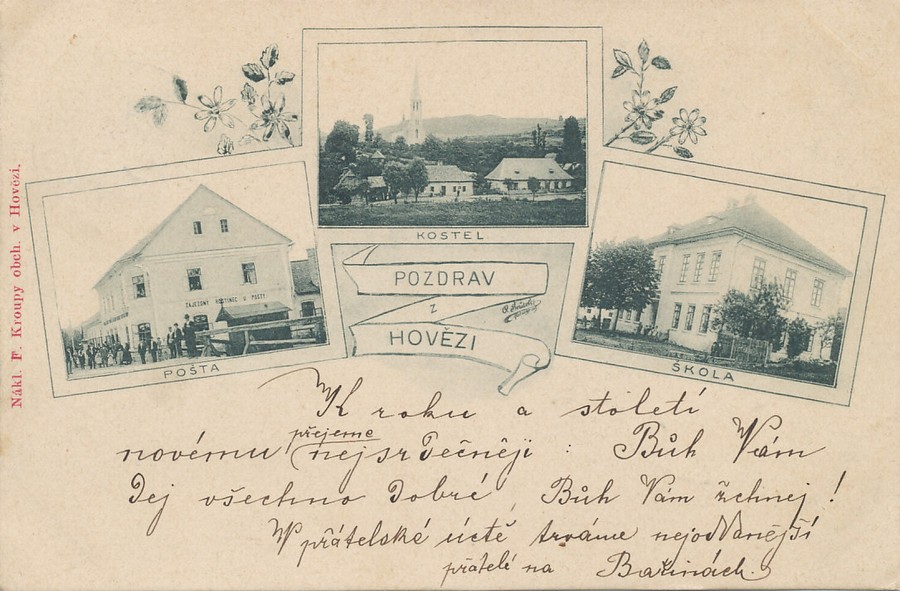 Nákl. F. Kroupy obch. v Hovězí.
KOSTEL
POZDRAV
Z
HOVĚZI
ZÁJEZDNÝ HOSTINEC U POŠTY
POŠTA
ŠKOLA
K roku a století
novému přejeme nejsrdečněji : Bůh Vám
dej všechno dobré, Bůh Vám žehnej!
V přátelské úctě trváme nejoddanější
přátelé na Bařinách.